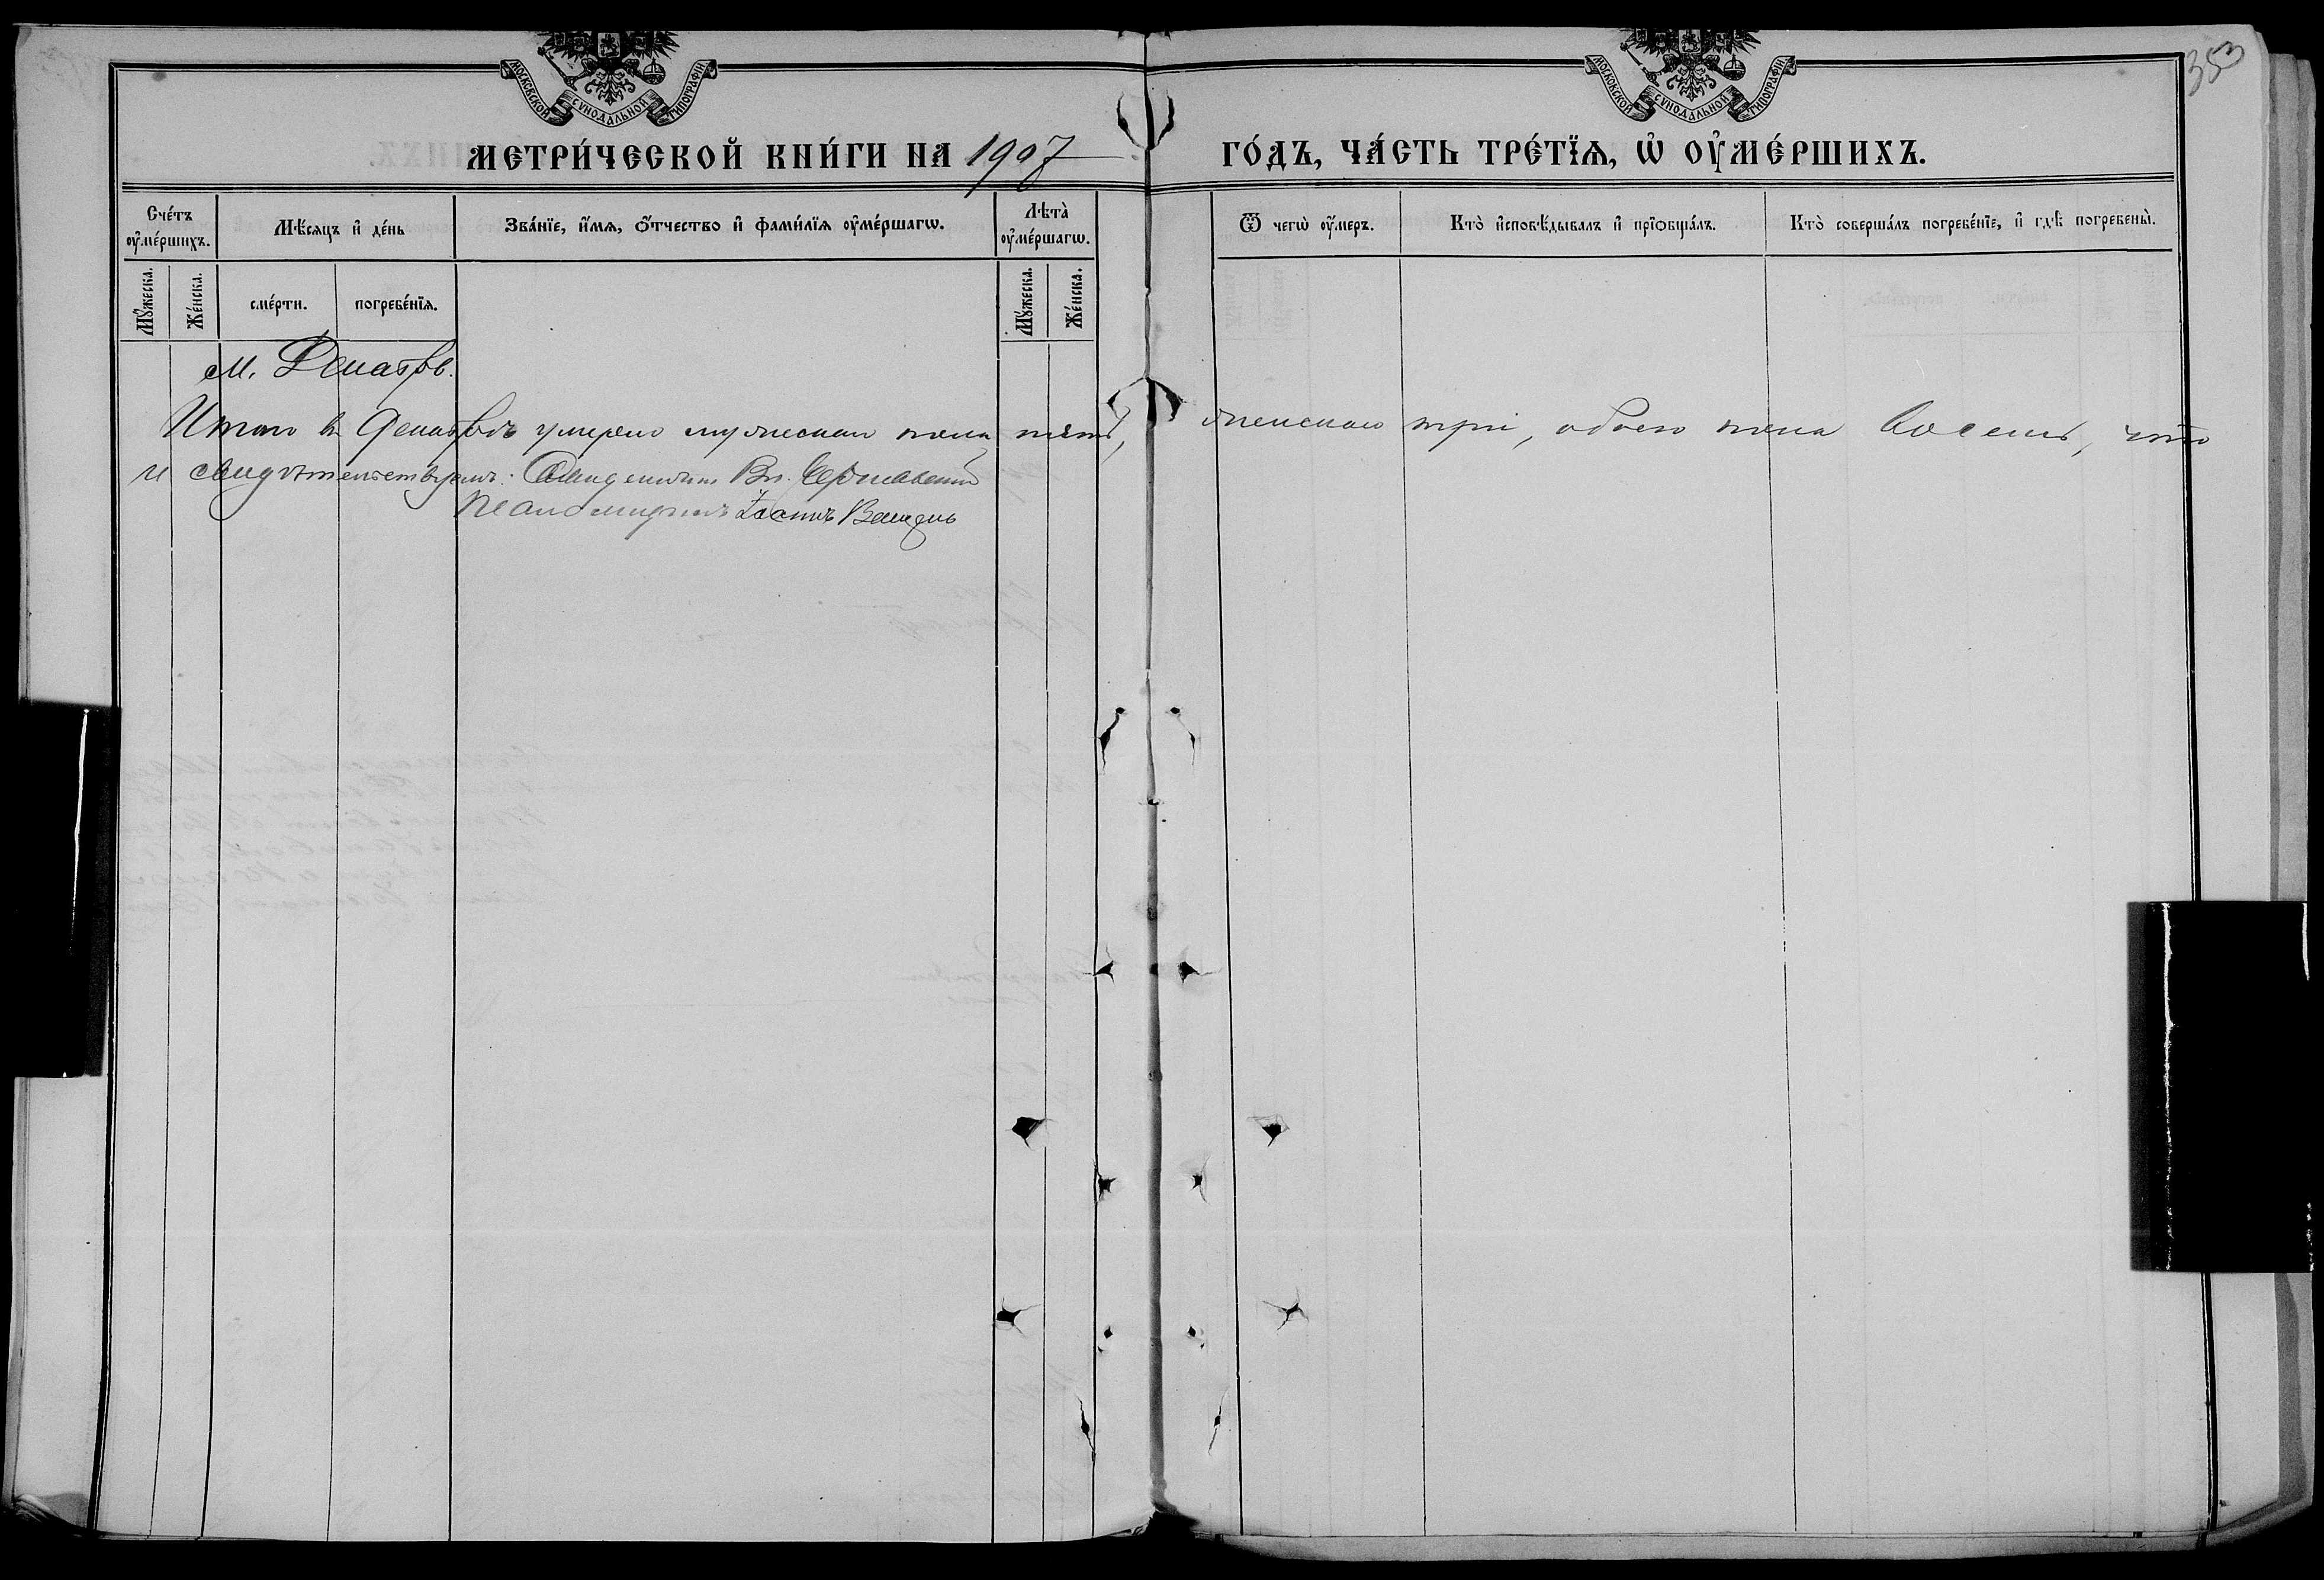 353
МОСКОВСКОЙ СѴНОДАЛЬНОЙ ТИПОГРАФІИ
МОСКОВСКОЙ СѴНОДАЛЬНОЙ ТИПОГРАФІИ
МЕТРИ́ЧЕСКОЙ КНИ́ГИ НА 1907 ГО́ДЪ, ЧА́СТЬ ТРЕ́ТЇѦ, Ѡ҆ ОУ҆МЕ́РШИХЪ.
Сче́тъ оу҆ме́ршихъ.
Мѣ́сяцъ и҆ де́нь
Зва́нїе, и҆́мя, ѻ҆́тчество и҆ фами́лїя оу҆ме́ршагѡ.
Лѣта̀ оу҆ме́ршагѡ.
Ѿ чегѡ̀ оу҆́меръ.
Кто̀ и҆сповѣ́дывалъ и҆ прїѡбща́лъ.
Кто̀ соверша́лъ погребе́нїе, и҆ гдѣ̀ погребены̀.
Мꙋ́жеска.
Же́нска.
сме́рти.
погребе́нїя.
Мꙋ́жеска.
Же́нска.
м. Декабрь.
Итого въ Декабрѣ умерло мужескаго пола пять, женскаго три, обоего пола восемь, что
и свидѣтельствуемъ: Священникъ Вл.
Псаломщикъ Іоаннъ